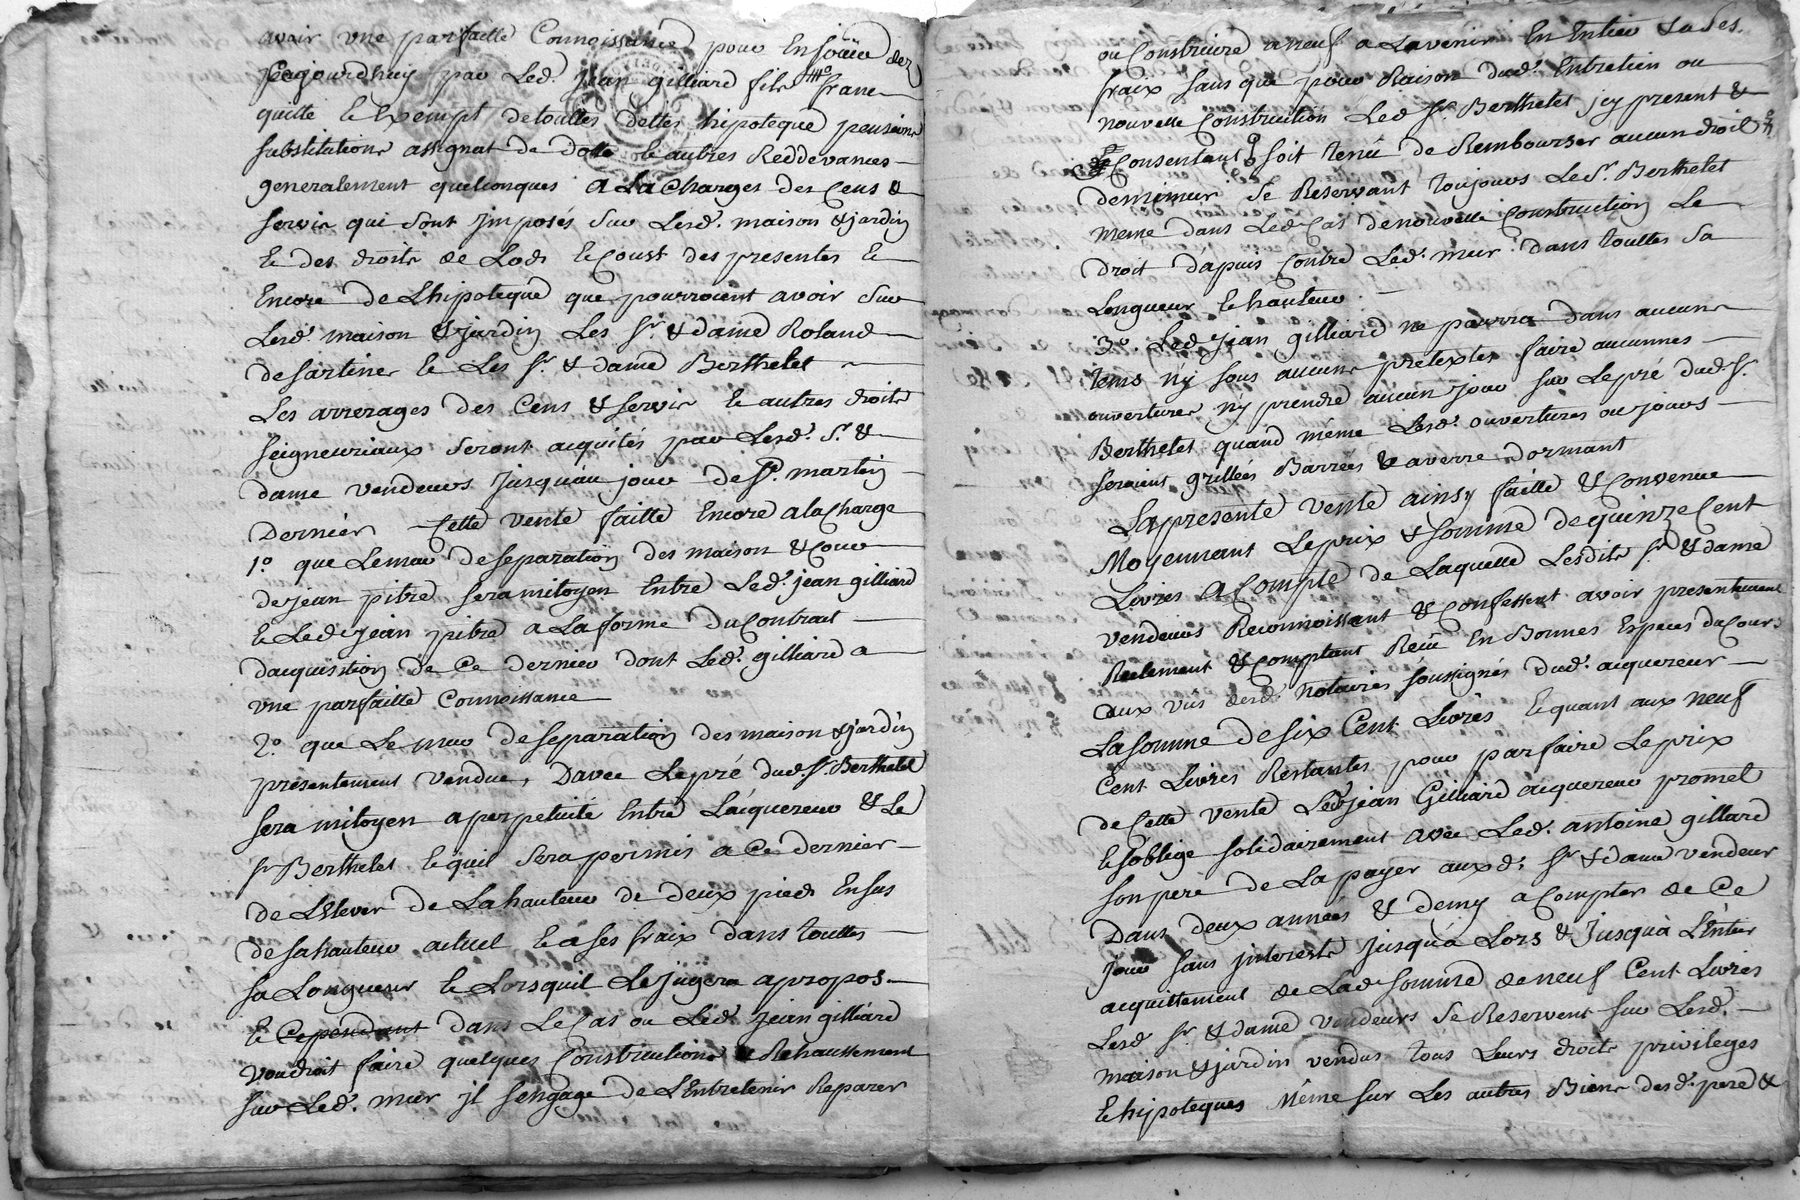 avoir une parfaitte Connoissance pour En Jouir dez
ce jourdhuy par Led. jean gilliard fils franc
quitte & Exempt detouttes dettes hipoteque pensions
substitutions assignat de dotte & autres Reddevances
generalement quelconques a La Charges des Cens &
servis qui sont jmposés sur Lesd. maison & jardin
& des droits de Lods & Coust des presentes &
Encore de Lhipoteque que pourroient avoir sur
Lesd. maison & jardin Les Sr. & dame Roland
desartines & Les Sr. & dame Berthelet
Les arrerages des Cens & servis & autres droits
seigneuriaux seront acquités par Lesd. Sr. &
dame vendeurs jusquau jour de St. martin
Dernier Cette vente faitte Encore ala Charge
1o. que Lemur deseparation des maison & Cour
dejean pitre sera mitoyen Entre Led. jean gilliard
& Led. jean pitre a La forme du Contrat
dacquisition de Ce dernier dont Led. gilliard a
une parfaitte Connoissance
2o. que Le mur deseparation des maison & jardin
presentement vendue, Davec Lepré dud. Sr. Berthelet
sera mitoyen a perpetuité Entre Lacquereur & Le
Sr Berthelet & quil sera permis a Ce dernier
de LElever de La hauteur de deux pieds En sus
de sa hauteur actuel & a ses fraix dans touttes
sa Longueur & Lorsquil Le jugera apropos.
& Cependant dans Le Cas ou Led. jean gilliard
voudroit faire quelques Constructions & Rehaussement
sur Led. mur jl sengage de LEntretenir Reparer
ou Construire aneuf a Lavenir En Entier a ses
fraix sans que pour Raison dud. Entretien ou
nouvelle Construction Led Sr. Berthelet jcy present &
Consentant soit tenû de Rembourser aucun droit
demimur se Reservant toujours Led Sr. Berthelet
meme dans Led. Cas denouvelle Construction Le
droit dapuis Contre Led. mur dans touttes sa
Longueur & hauteur.
3o. Led. jean gilliard ne pourra dans aucuns
tems ny sous aucuns pretextes faire aucunnes
ouvertures ny prendre aucun jour sur Lepré dud. Sr.
Berthelet quand même Lesd. ouvertures ou jours
seroient grillées Barrées & averre dormant
Lapresente vente ainsy faitte & Convenue
Moyennant Leprix & somme dequinze Cent
Livres a Compte de Laquelle Lesdits Sr. & dame
vendeurs Reconnoissant & Confessent avoir presentement
Reelement & Comptant Reçû En Bonnes Especes du Cours
aux vûs desd. Notaires soussignés dud. acquereur
La somme de six Cent Livres & quant aux neuf
Cent Livres Restantes pour parfaire Le prix
de Cette vente Led. jean Gilliard acquereur promet
& soblige solidairement avec Led. antoine gillard
son pere de La payer auxd. Sr. & dame vendeur
Dans deux années & demy a Compter de Ce
jour sans jnterests jusqua Lors & jusquà LEntier
acquittement de Lad. somme de neuf Cent Livres
Lesd Sr. & dame vendeurs se Reservent sur Lesd.
maison & jardin vendus tous Leurs droits privileges
& hipoteques même sur Les autres Biens desd. pere &